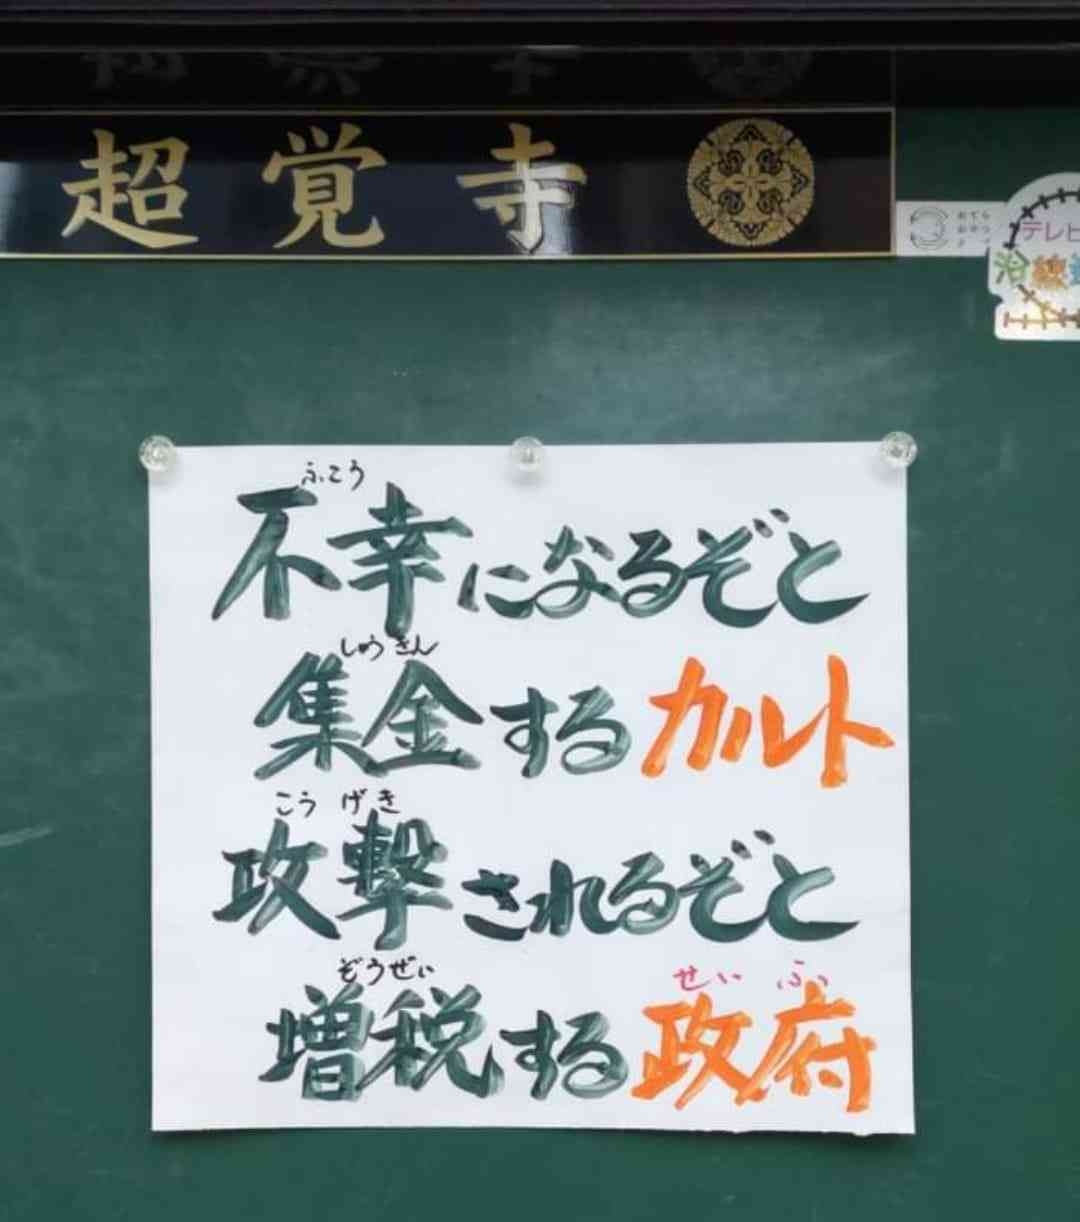 超覚寺
おてら
おやつ
テレビ
沿線
ふこう
不幸になるぞと
しゅうきん
集金するカルト
こうげき
攻撃されるぞと
ぞうぜい
せいふ
増税する政府